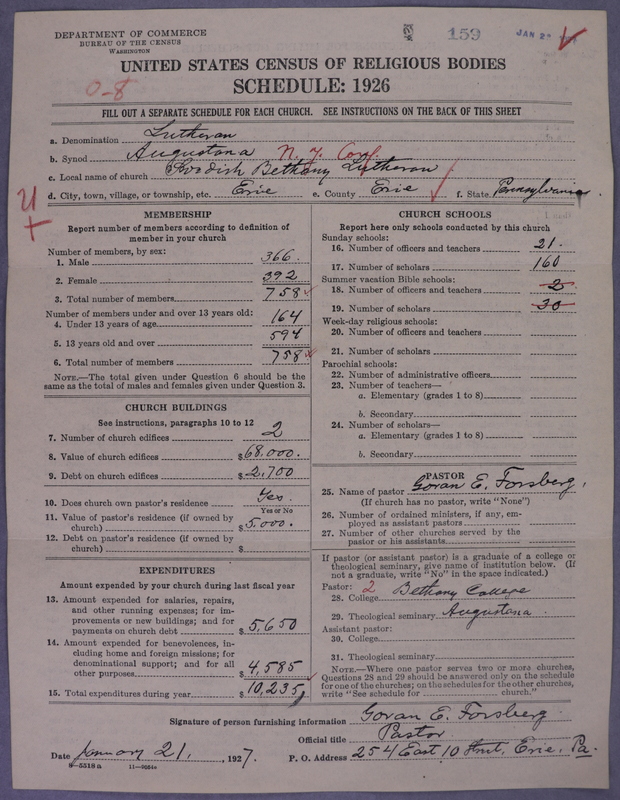 DEPARTMENT OF COMMERCE
BUREAU OF THE CENSUS
WASHINGTON
159
JAN 2
0-8
UNITED STATES CENSUS OF RELIGIOUS BODIES
SCHEDULE: 1926
FILL OUT A SEPARATE SCHEDULE FOR EACH CHURCH. SEE INSTRUCTIONS ON THE BACK OF THIS SHEET
a. Denomination Lutheran
b. Synod Augustana N. Y. Conf
c. Local name of church Swedish Bethany Lutheran
d. City, town, village, or township, etc. Erie e. County Erie f. State Pennsylvania.
MEMBERSHIP
Report number of members according to definition of
member in your church
Number of members, by sex:
1. Male 366.
2. Female 392
3. Total number of members 758
Number of members under and over 13 years old:
4. Under 13 years of age 164
5. 13 years old and over 594
6. Total number of members 758
NOTE.—The total given under Question 6 should be the
same as the total of males and females given under Question 3.
CHURCH BUILDINGS
See instructions, paragraphs 10 to 12
7. Number of church edifices 2
8. Value of church edifices $68,000.
9. Debt on church edifices $2,700
10. Does church own pastor's residence? Yes.
Yes or No
11. Value of pastor's residence (if owned by
church) $5,000.
12. Debt on pastor's residence (if owned by
church) $
EXPENDITURES
Amount expended by your church during last fiscal year
13. Amount expended for salaries, repairs,
and other running expenses; for im-
provements or new buildings; and for
payments on church debt $5,650
14. Amount expended for benevolences, in-
cluding home and foreign missions; for
denominational support; and for all
other purposes $4,585
15. Total expenditures during year $10,235
CHURCH SCHOOLS
Report here only schools conducted by this church
Sunday schools:
16. Number of officers and teachers 21.
17. Number of scholars 160
Summer vacation Bible schools:
18. Number of officers and teachers 2
19. Number of scholars 30
Week-day religious schools:
20. Number of officers and teachers
21. Number of scholars
Parochial schools:
22. Number of administrative officers
23. Number of teachers—
a. Elementary (grades 1 to 8)
b. Secondary
24. Number of scholars—
a. Elementary (grades 1 to 8)
b. Secondary
PASTOR
25. Name of pastor Goran E. Forsberg.
(If church has no pastor, write "None")
26. Number of ordained ministers, if any, em-
ployed as assistant pastors
27. Number of other churches served by the
pastor or his assistants
If pastor (or assistant pastor) is a graduate of a college or
theological seminary, give name of institution below. (If
not a graduate, write "No" in the space indicated.)
Pastor: 2
28. College Bethany College
29. Theological seminary Augustana
Assistant pastor:
30. College
31. Theological seminary
NOTE.—Where one pastor serves two or more churches,
Questions 28 and 29 should be answered only on the schedule
for one of the churches; on the schedules for the other churches,
write "See schedule for church."
Signature of person furnishing information Goran E. Forsberg
Official title Pastor
Date January 21, 1927. P. O. Address 254 East 10 Street, Erie, Pa.
8-5518a 11-9654